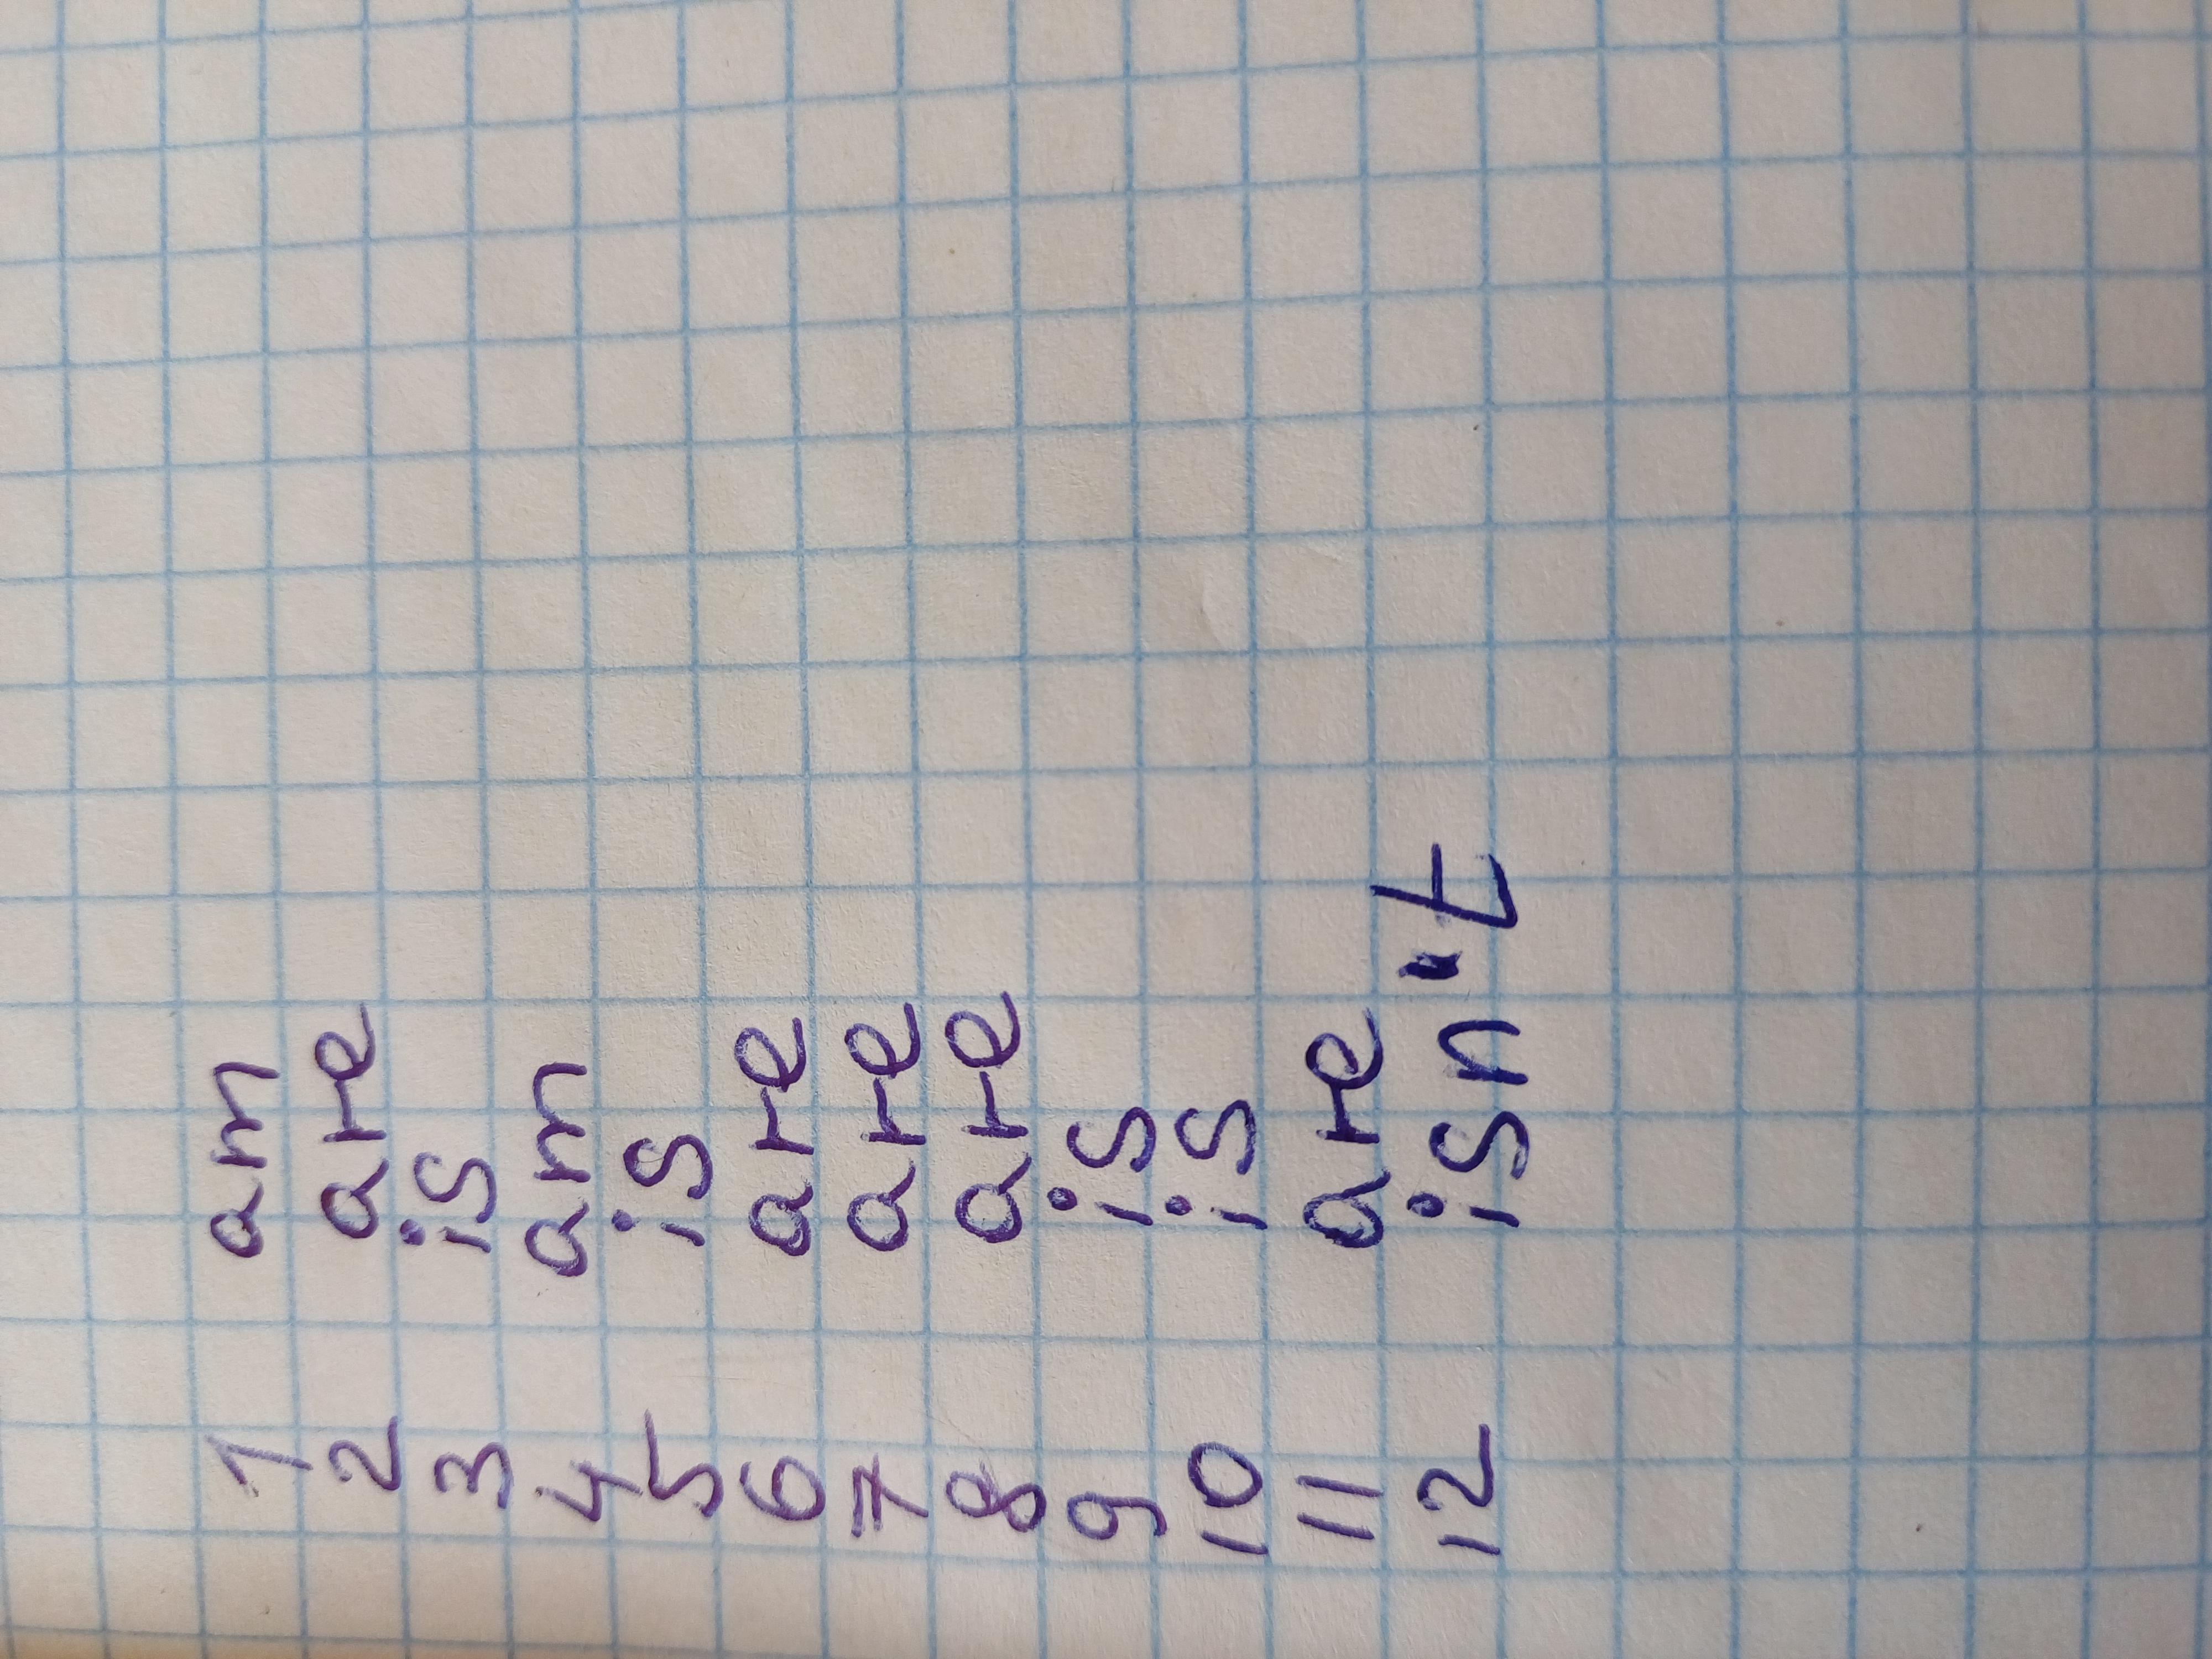 1 am
2 are
3 is
4 am
5 is
6 are
7 are
8 are
9 is
10 is
11 are
12 isn't